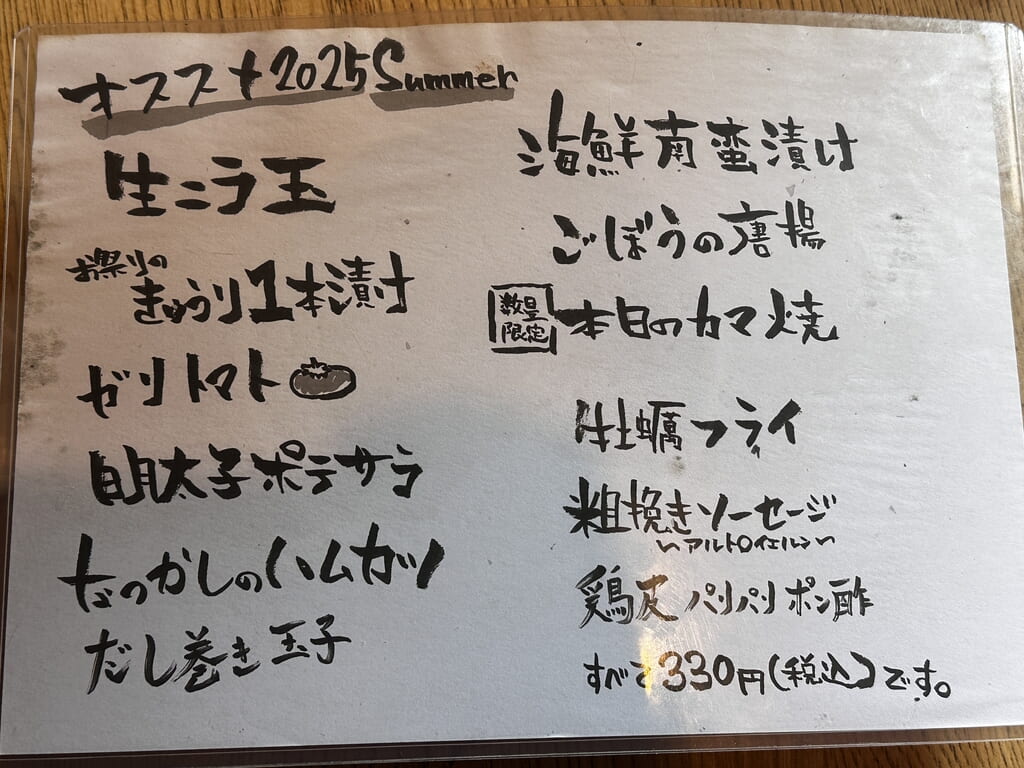 オススメ2025Summer
生ニラ玉
お祭りの
きゅうり1本漬け
ゼリトマト
明太子ポテサラ
なつかしのハムカツ
だし巻き玉子
海鮮南蛮漬け
ごぼうの唐揚
数量限定 本日のカマ焼
牡蠣フライ
粗挽きソーセージ
～アルトロイエルン～
鶏皮パリパリポン酢
すべて330円(税込)です。